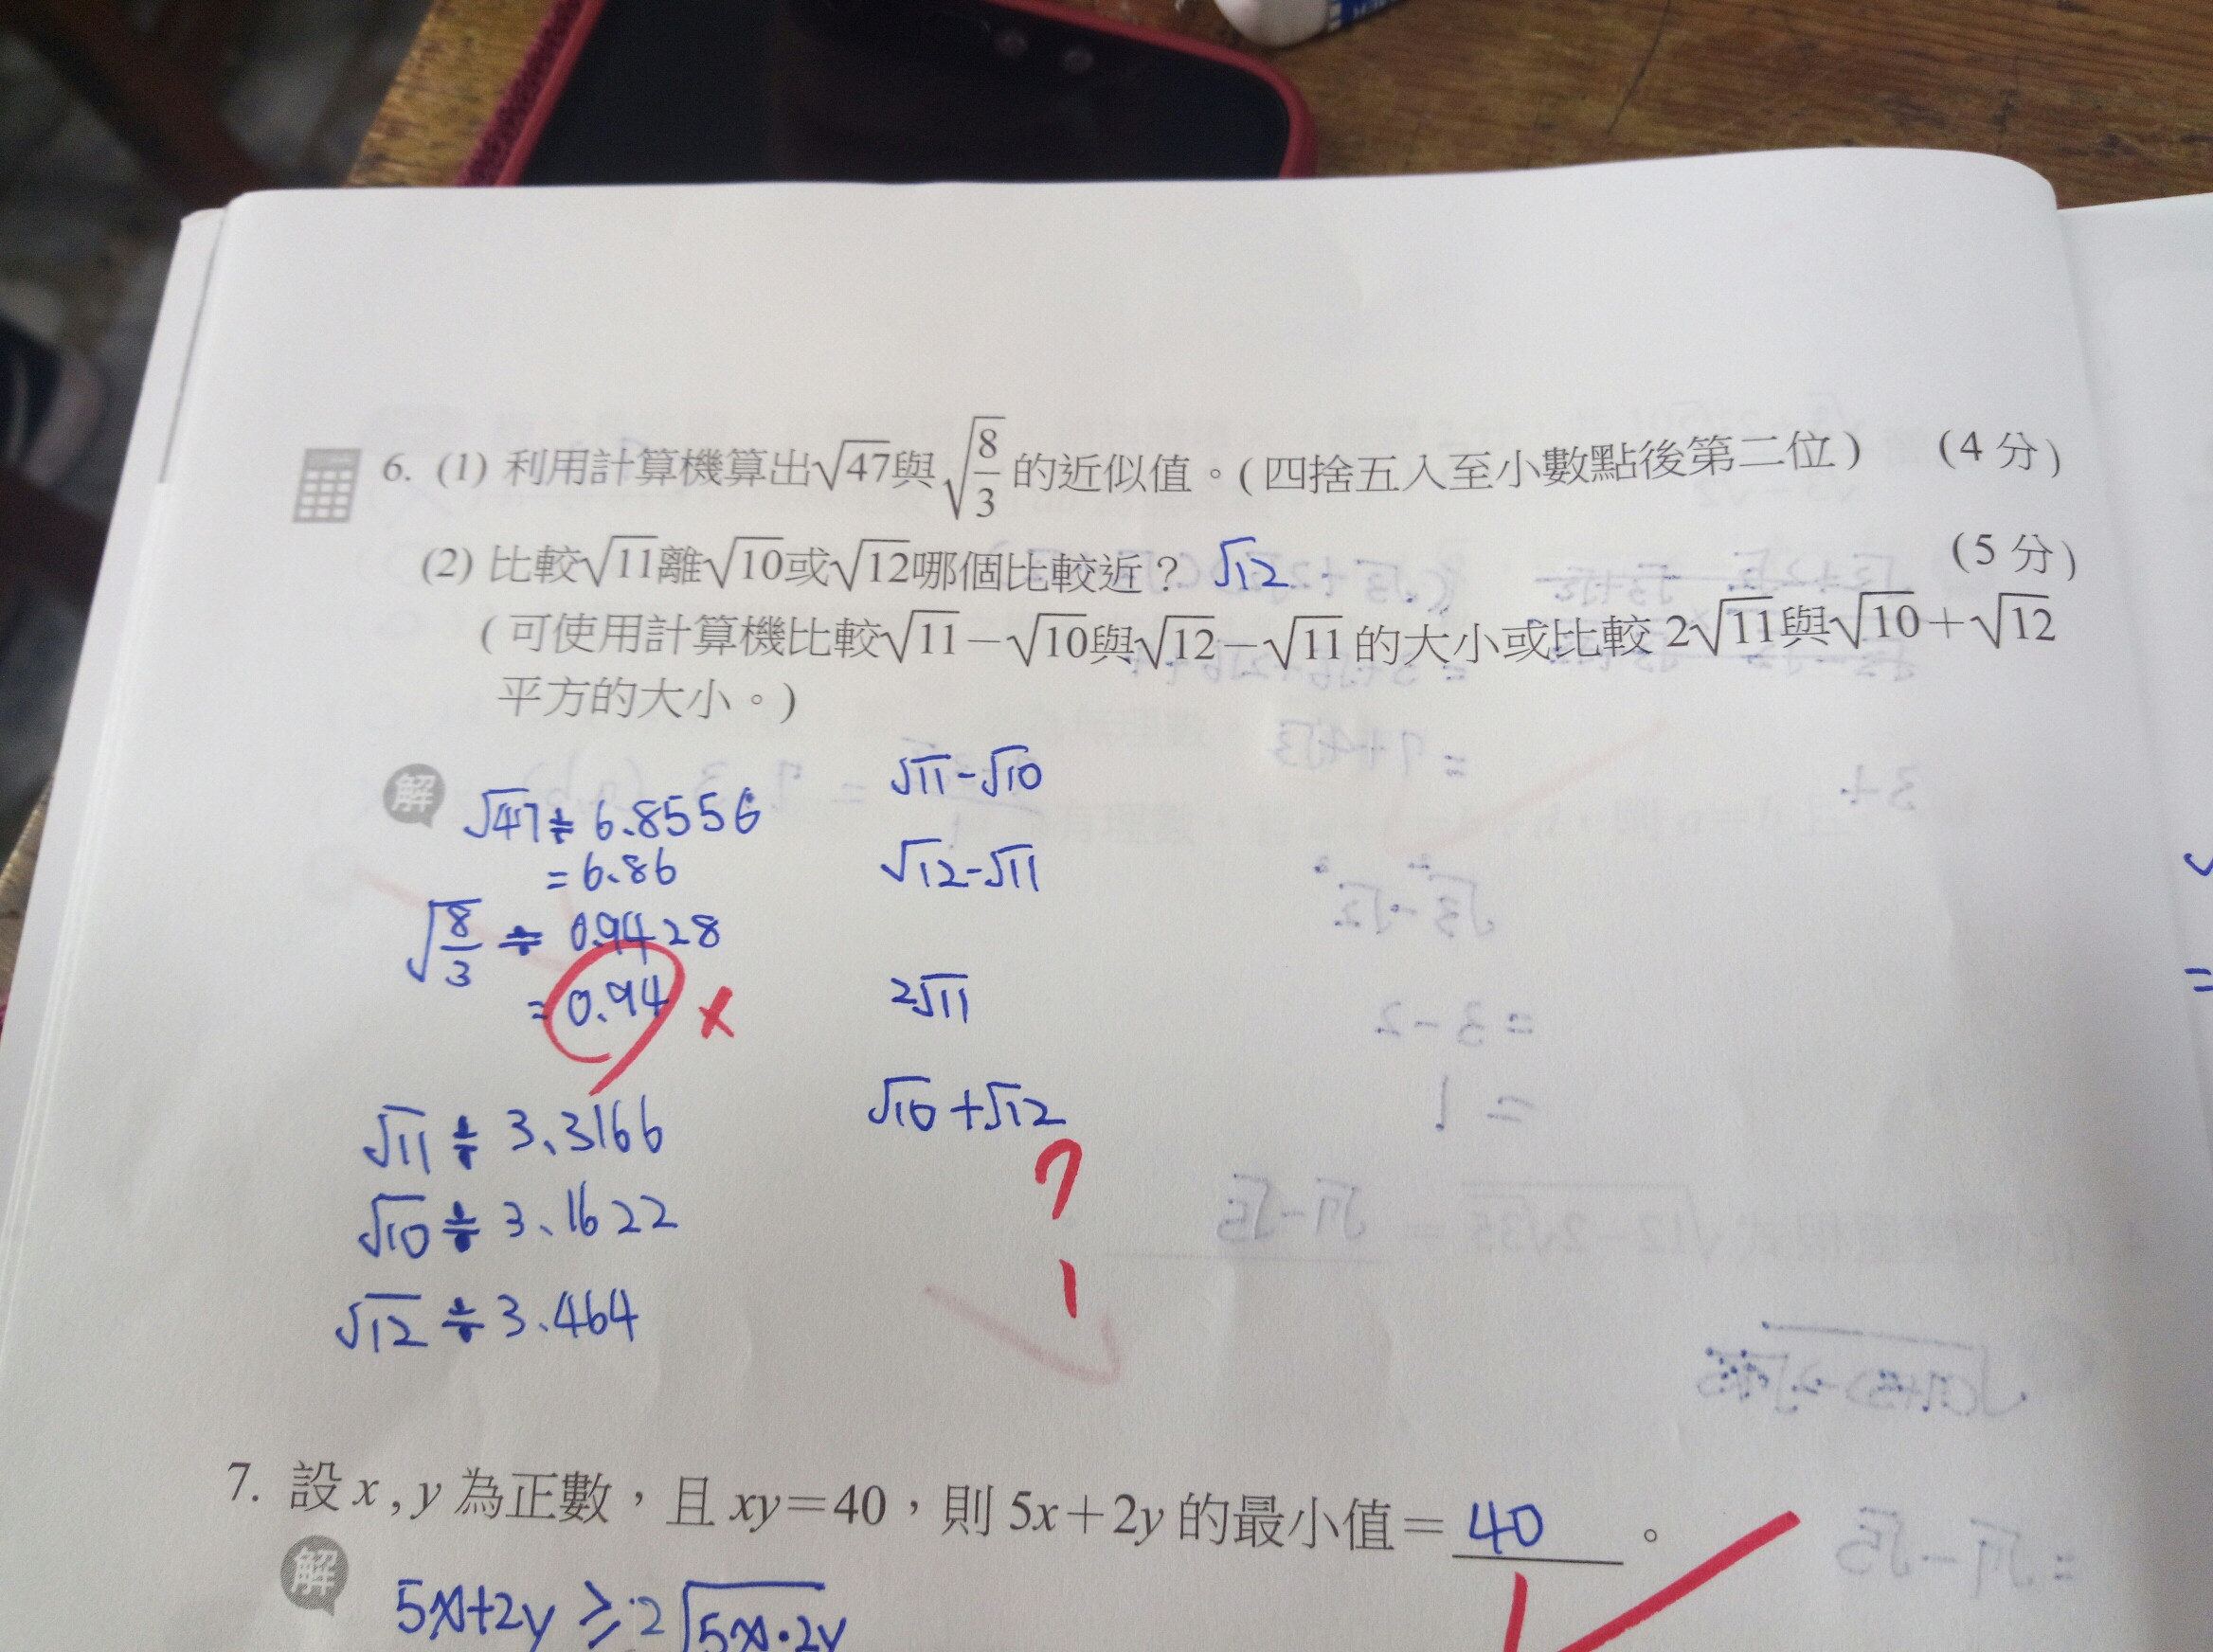 6. (1) 利用計算機算出√47與√(8/3)的近似值。(四捨五入至小數點後第二位) (4 分)
(2) 比較√11離√10或√12哪個比較近? √12 (5 分)
(可使用計算機比較√11−√10與√12−√11的大小或比較 2√11與√10+√12
平方的大小。)
解
√47≑6.8556
=6.86
√(8/3)≑0.9428
=0.94 ×
√11≑3.3166
√10≑3.1622
√12≑3.464
√11-√10
√12-√11
2√11
√10+√12
?
7. 設 x , y 為正數,且 xy=40,則 5x+2y 的最小值= 40 。
解
5x+2y ≥ 2√(5x·2y)